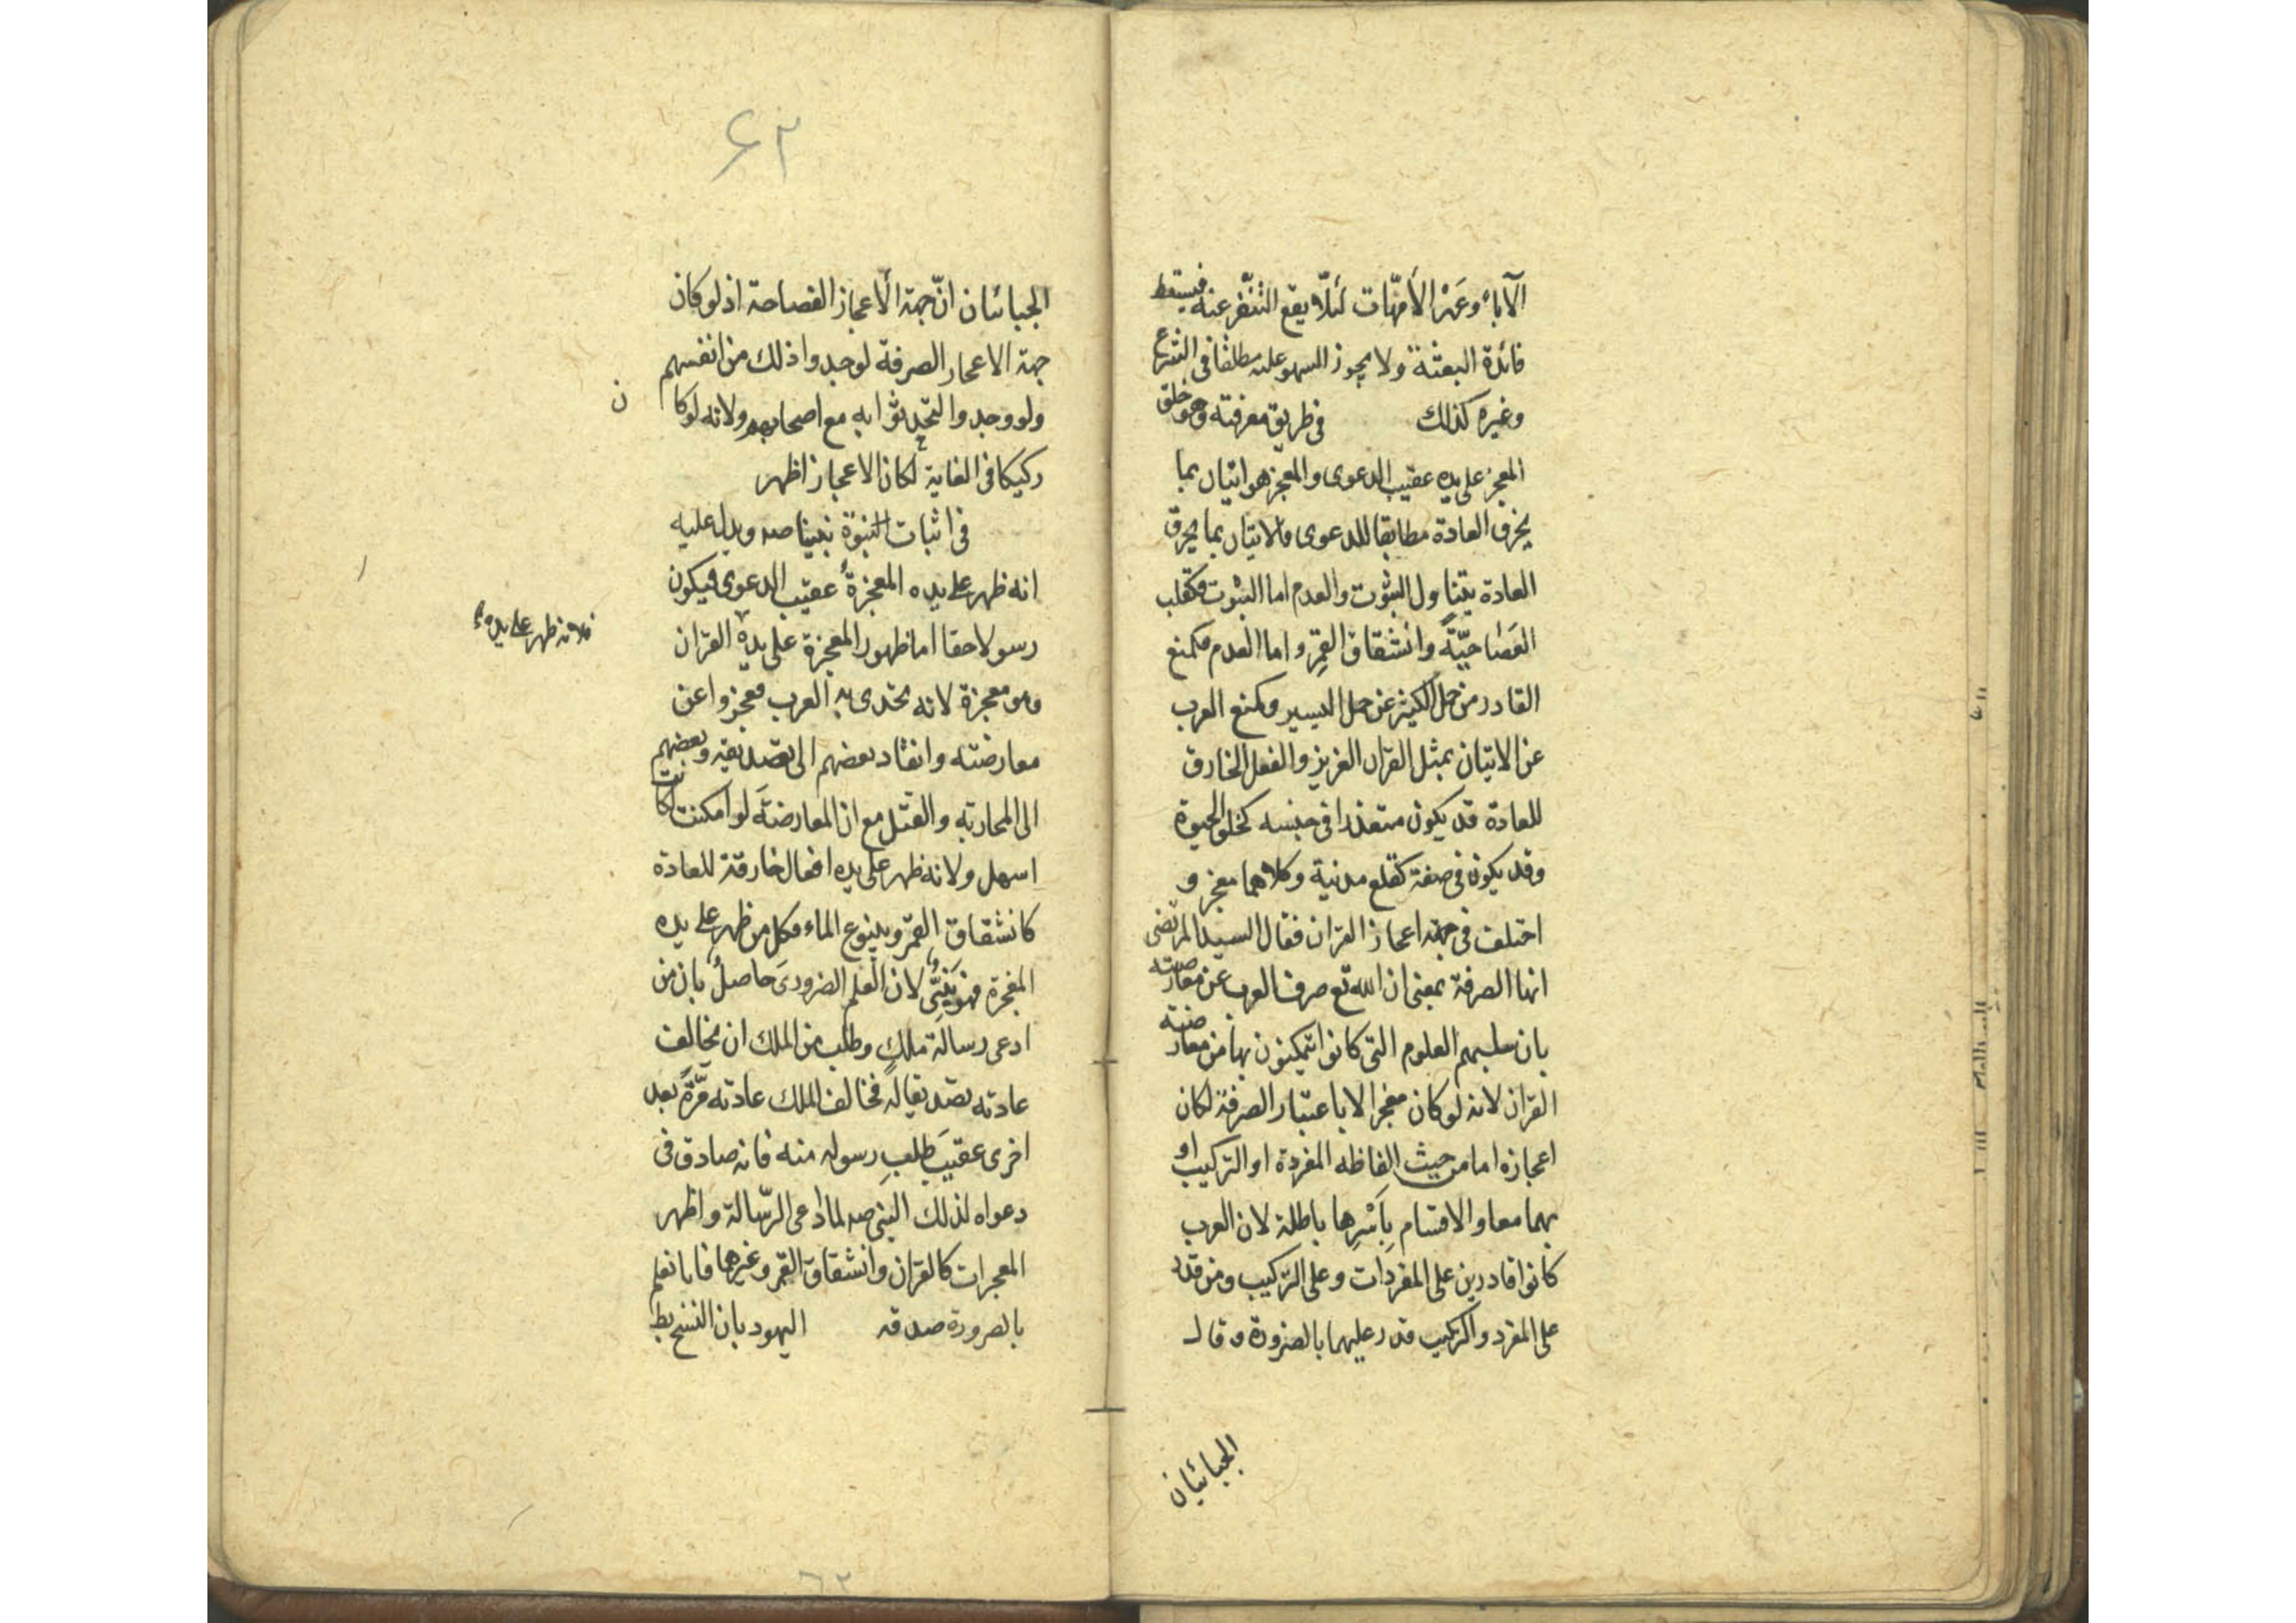 الآباء وعَهْر الأمّهات لئلّا يقع التنفّر عنه فيسقط
فائدة البعثة ولا يجوز السهو عليه مطلقا فى الشرع
وغيره كذلك فى طريق معرفته وهو خلق
المعجز على يده عقيب الدعوى والمعجز هو اتيان بما
يخرق العادة مطابقا للدعوى والاتيان بما يخرق
العادة يتناول الثبوت والعدم اما الثبوت فكقلب
العَصَا حيّةً وانشقاق القمر و اما العدم فكمنع
القادر من حمل الكثير عن حمل اليسير وكمنع العرب
عن الاتيان بمثل القران العزيز والفعل الخارق
للعادة قد يكون متعذرا فى جنسه كخلق الحيوة
وقد يكون فى صفة كقلع مدنية وكلاهما معجز و
اختلف فى جهة اعجاز القران فقال السيد المرتضى
انها الصرفة بمعنى ان الله تع صرف العرب عن معارضته
بان سلبهم العلوم التى كانوا يتمكنون بها من معارضته
القران لانه لو كان معجزا لا باعتبار الصرفة لكان
اعجازه اما من حيث الفاظه المفردة او التركيب او
بهما معا والاقسام بِأَسْرِها باطلة لان العرب
كانوا قادرين على المفردات وعلى التركيب ومن قدر
على المفرد والتركيب قدر عليهما بالضرورة و قال
الجبائيان
۶۲
الجبائيان انّ جهة الاعجاز الفصاحة اذ لو كان
جهة الاعجاز الصرفة لوجدوا ذلك من انفسهم
ولو وجدوا لتحدثوا به مع اصحابهم ولانه لو كا ن
ركيكا فى الغاية لكان الاعجاز اظهر
فى اثبات النبوّة نبينا صه ويدل عليه
انه ظهر على يده المعجزة عقيب الدعوى فيكون
فلانه ظهر على يده
رسولا حقا اما ظهور المعجزة على يده القران
وهو معجزة لانه تحدى به العرب فعجزوا عن
معارضته وانقاد بعضهم الى تصديقه وبعضهم
الى المحاربة والقتل مع ان المعارضة لو امكنت كانت
اسهل ولانه ظهر على يده افعال خارقة للعادة
كانشقاق القمر وينبوع الماء فكل من ظهر على يده
المعجزة فهو نَبِىٌّ لان العلم الضرورى حاصلٌ بان من
ادعى رسالة ملكٍ وطلب من الملك ان يخالف
عادته تصديقا له فخالف الملك عادته مرّةً بعد
اخرى عقيبَ طلبِ رسوله منه فانه صادق فى
دعواه لذلك النبى صه لما ادعى الرّسالة واظهر
المعجزات كالقران وانشقاق القمر وغيرهما فانا نعلم
بالضرورة صدقه اليهود بان النسخ بط
۶۲